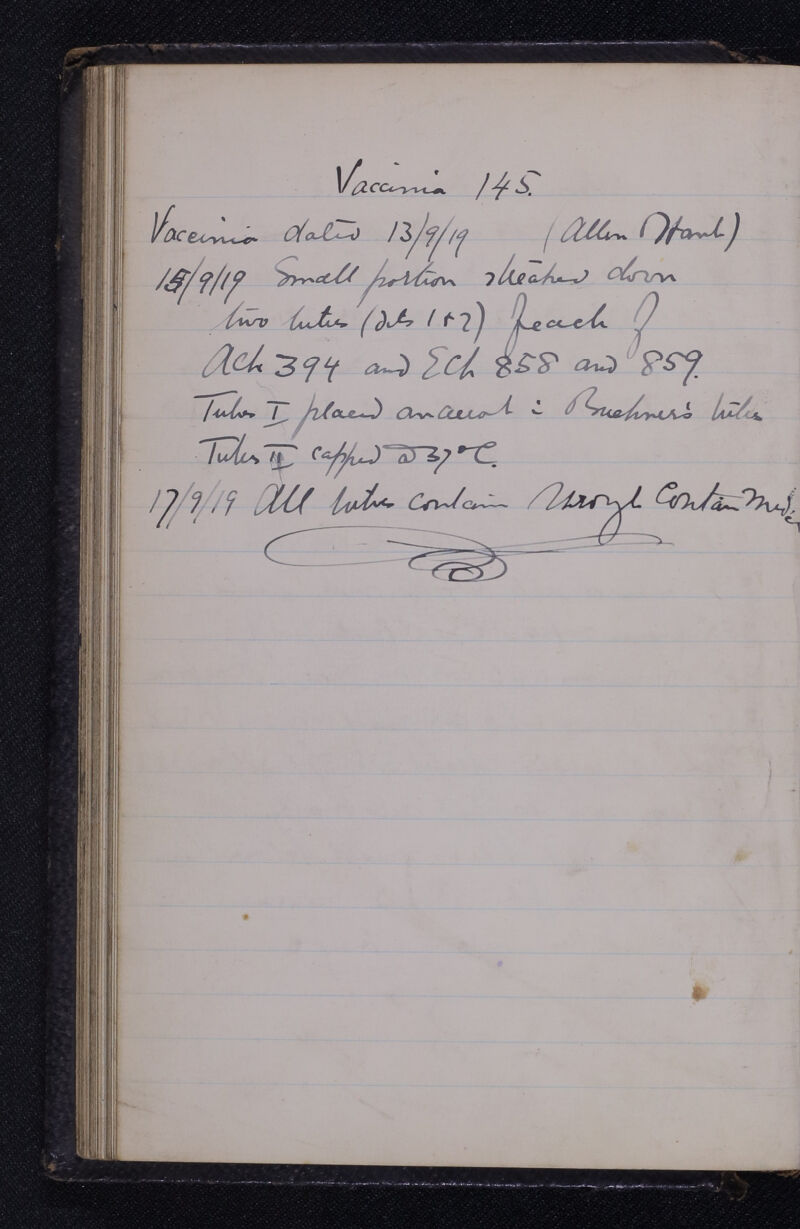 Vaccinia 145.
Vaccinia dated 13/9/19 (Allen & Hanb)
15/9/19 Small portion streaked down
two tubes (sets 1 & 2) of each of
Ach 394 and Ech 858 and 859.
Tubes I placed anaerob in Buchner's tubes
Tubes II capped @ 37°C.
17/9/19 All tubes contain through Contam